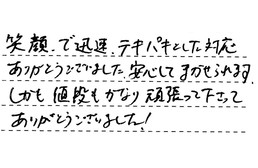 笑顔.で迅速.テキパキとした対応
ありがとうございました.安心してまかせられます.
しかも値段もかなり頑張って下さって
ありがとうございました!